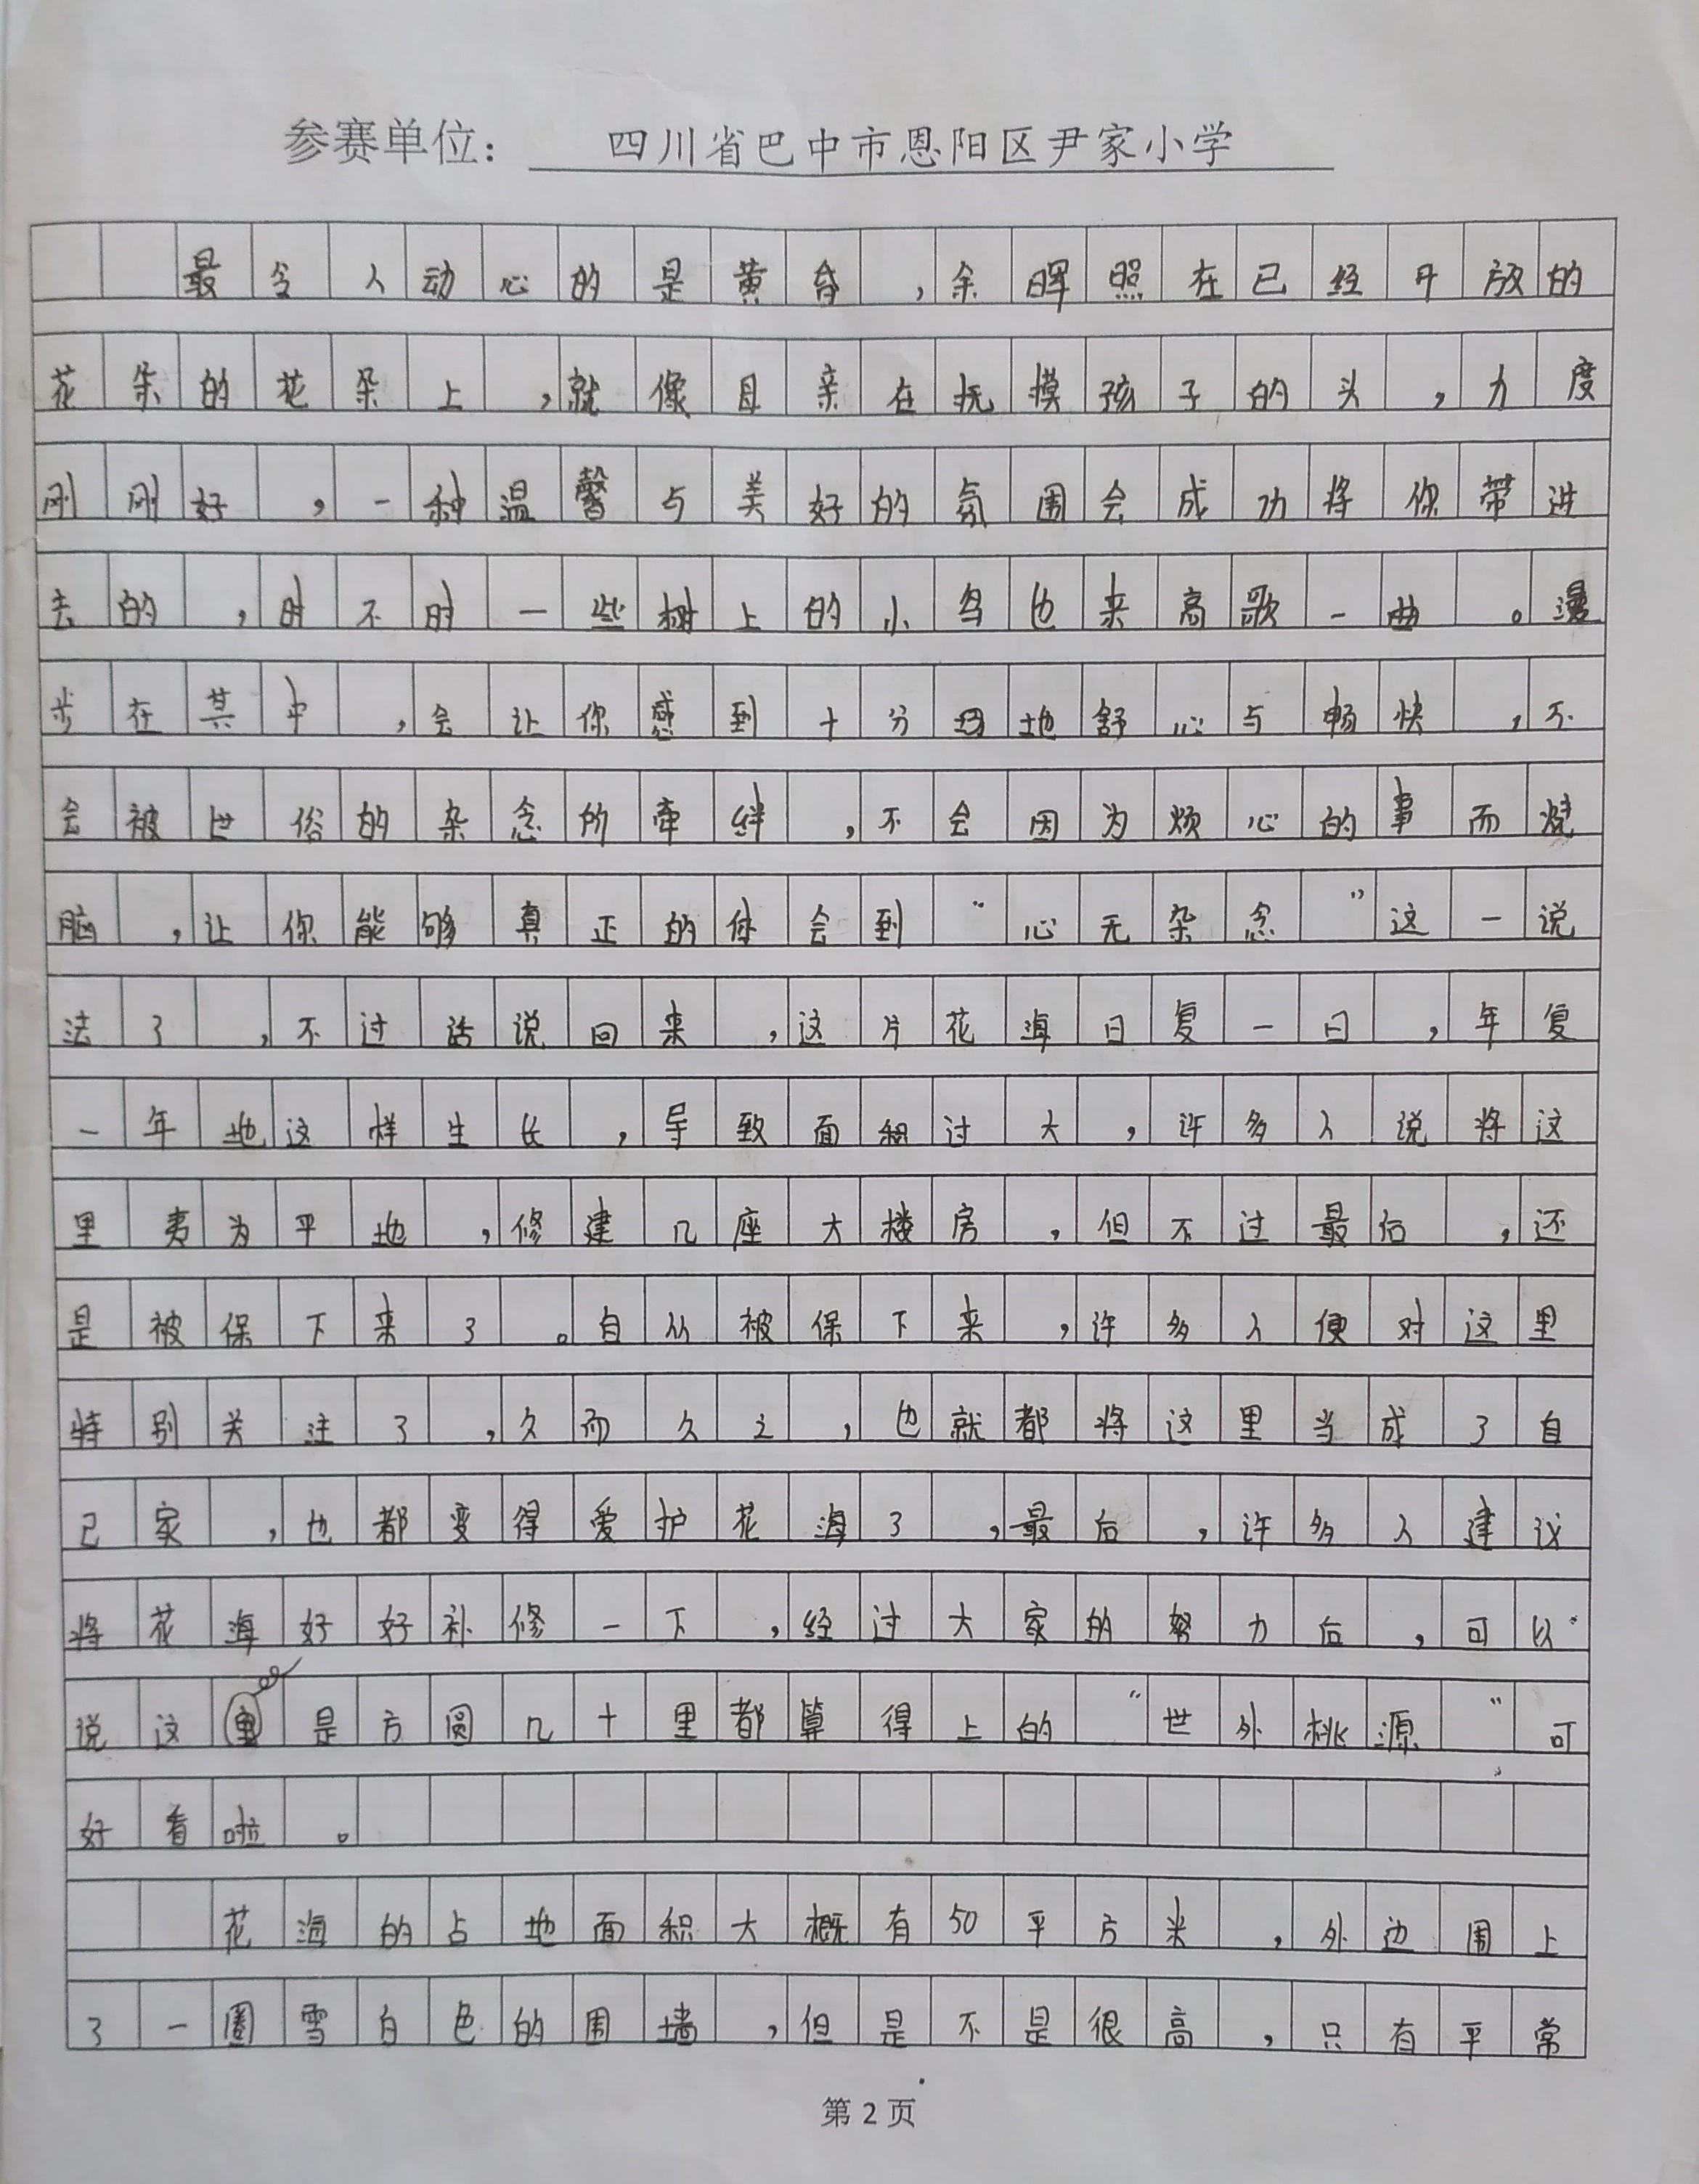 参赛单位：四川省巴中市恩阳区尹家小学
最令人动心的是黄昏，余晖照在已经开放的
花朵的花朵上，就像母亲在抚摸孩子的头，力度
刚刚好，一种温馨与美好的氛围会成功将你带进
去的，时不时一些树上的小鸟也来高歌一曲。漫
步在其中，会让你感到十分地舒心与畅快，不
会被世俗的杂念所牵绊，不会因为烦心的事而烧
脑，让你能够真正的体会到“心无杂念”这一说
法了，不过话说回来，这片花海日复一日，年复
一年地这样生长，导致面积过大，许多人说将这
里夷为平地，修建几座大楼房，但不过最后，还
是被保下来了。自从被保下来，许多人便对这里
特别关注了，久而久之，也就都将这里当成了自
己家，也都变得爱护花海了，最后，许多人建议
将花海好好补修一下，经过大家的努力后，可以
说这是方圆几十里都算得上的“世外桃源”可
好看啦。
花海的占地面积大概有50平方米，外边围上
了一圈雪白色的围墙，但是不是很高，只有平常
第2页